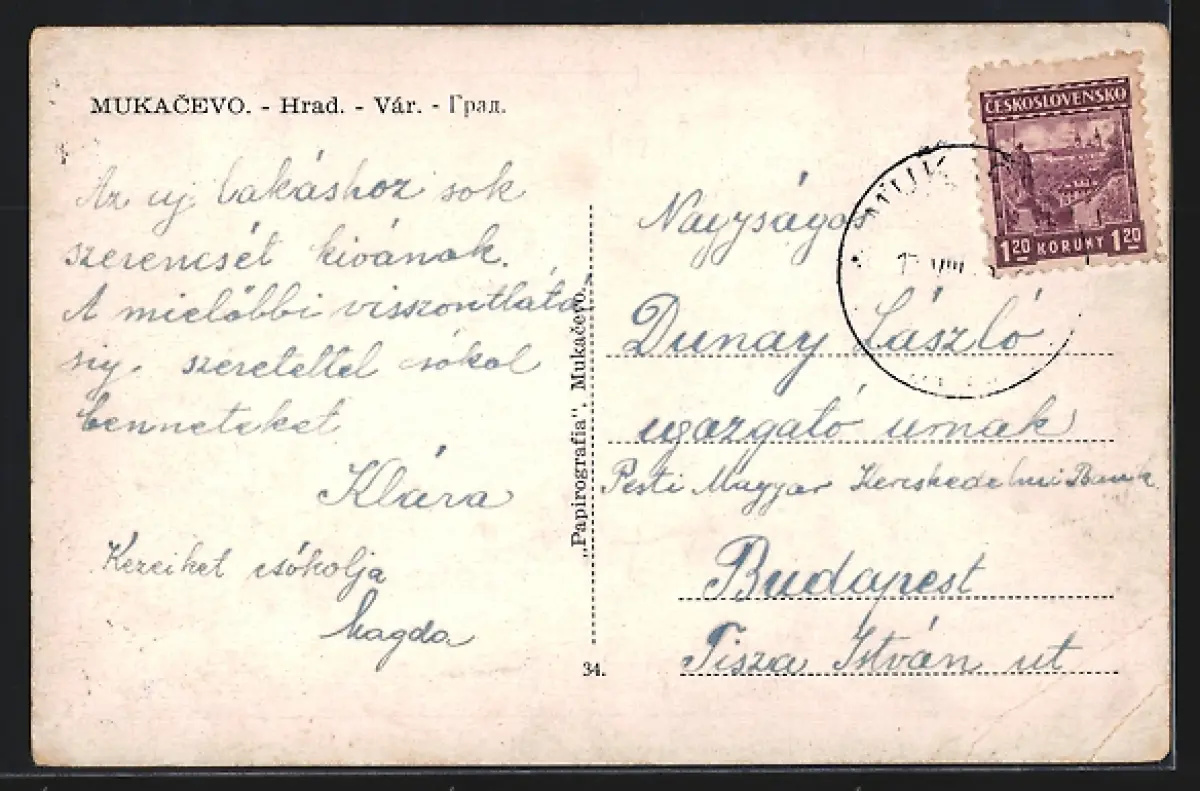 MUKAČEVO. - Hrad. - Vár. - Град.
ČESKOSLOVENSKO
1 20 KORUNY 1 20
Az uj lakáshoz sok
szerencsét kivánok.
A mielőbbi viszontlátá
sig. szeretettel csókol
benneteket
Klára
Kezeiket csókolja
Magda
„Papirografia“, Mukačevo.
34.
Nagyságos
Dunay László
igazgató urnak
Pesti Magyar Kereskedelmi Bank
Budapest
Tisza István ut
VIII